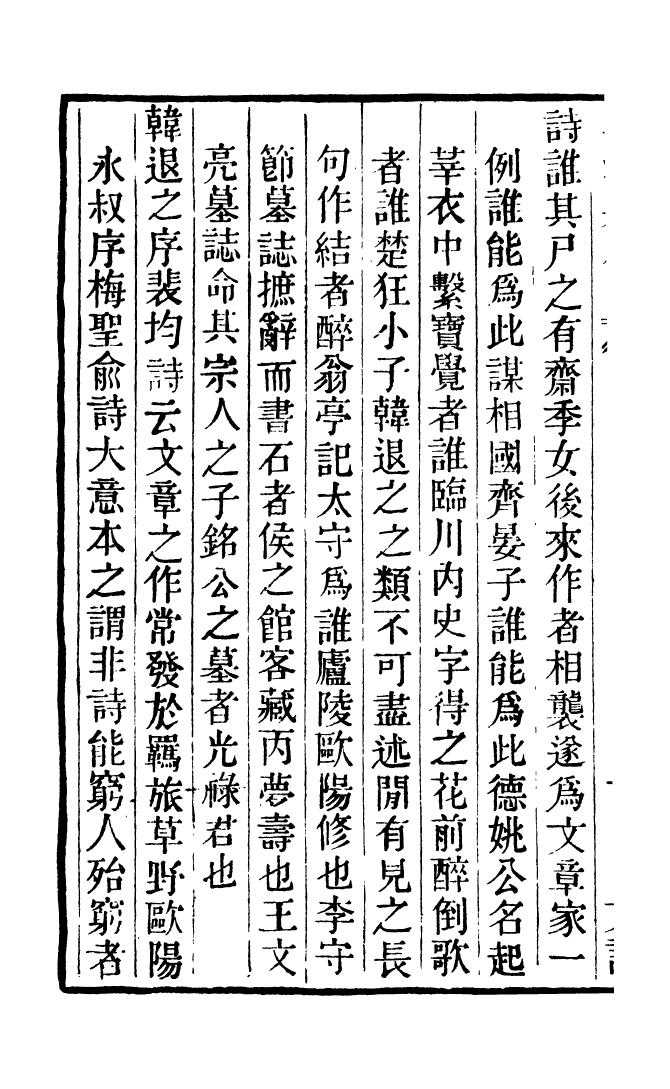 詩誰其尸之有齋季女後來作者相襲遂爲文章家一
例誰能爲此謀相國齊晏子誰能爲此德姚公名起
莘衣中繫寶覺者誰臨川內史字得之花前醉倒歌
者誰楚狂小子韓退之之類不可盡述閒有見之長
句作結者醉翁亭記太守爲誰廬陵歐陽修也李守
節墓誌摭辭而書石者侯之館客藏丙夢壽也王文
亮墓誌命其宗人之子銘公之墓者光祿君也
韓退之序裴均詩云文章之作常發於羈旅草野歐陽
永叔序梅聖俞詩大意本之謂非詩能窮人殆窮者